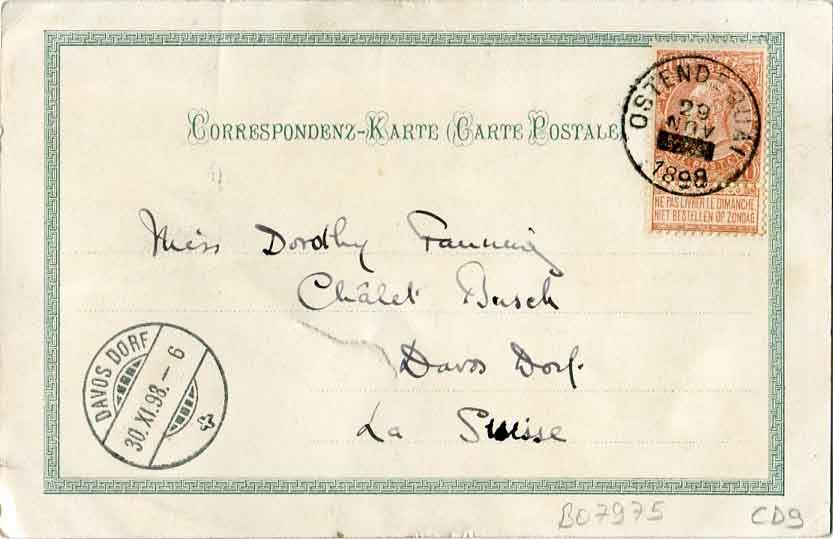 CORRESPONDENZ-KARTE (CARTE POSTALE
OSTEND-QUAI
29
NOV
1898
NE PAS LIVRER LE DIMANCHE
NIET BESTELLEN OP ZONDAG
Miss Dorothy Fanning
Châlet Busch
Davos Dorf.
La Suisse
DAVOS DORF
30.XI.98.-6
B07975
CD9